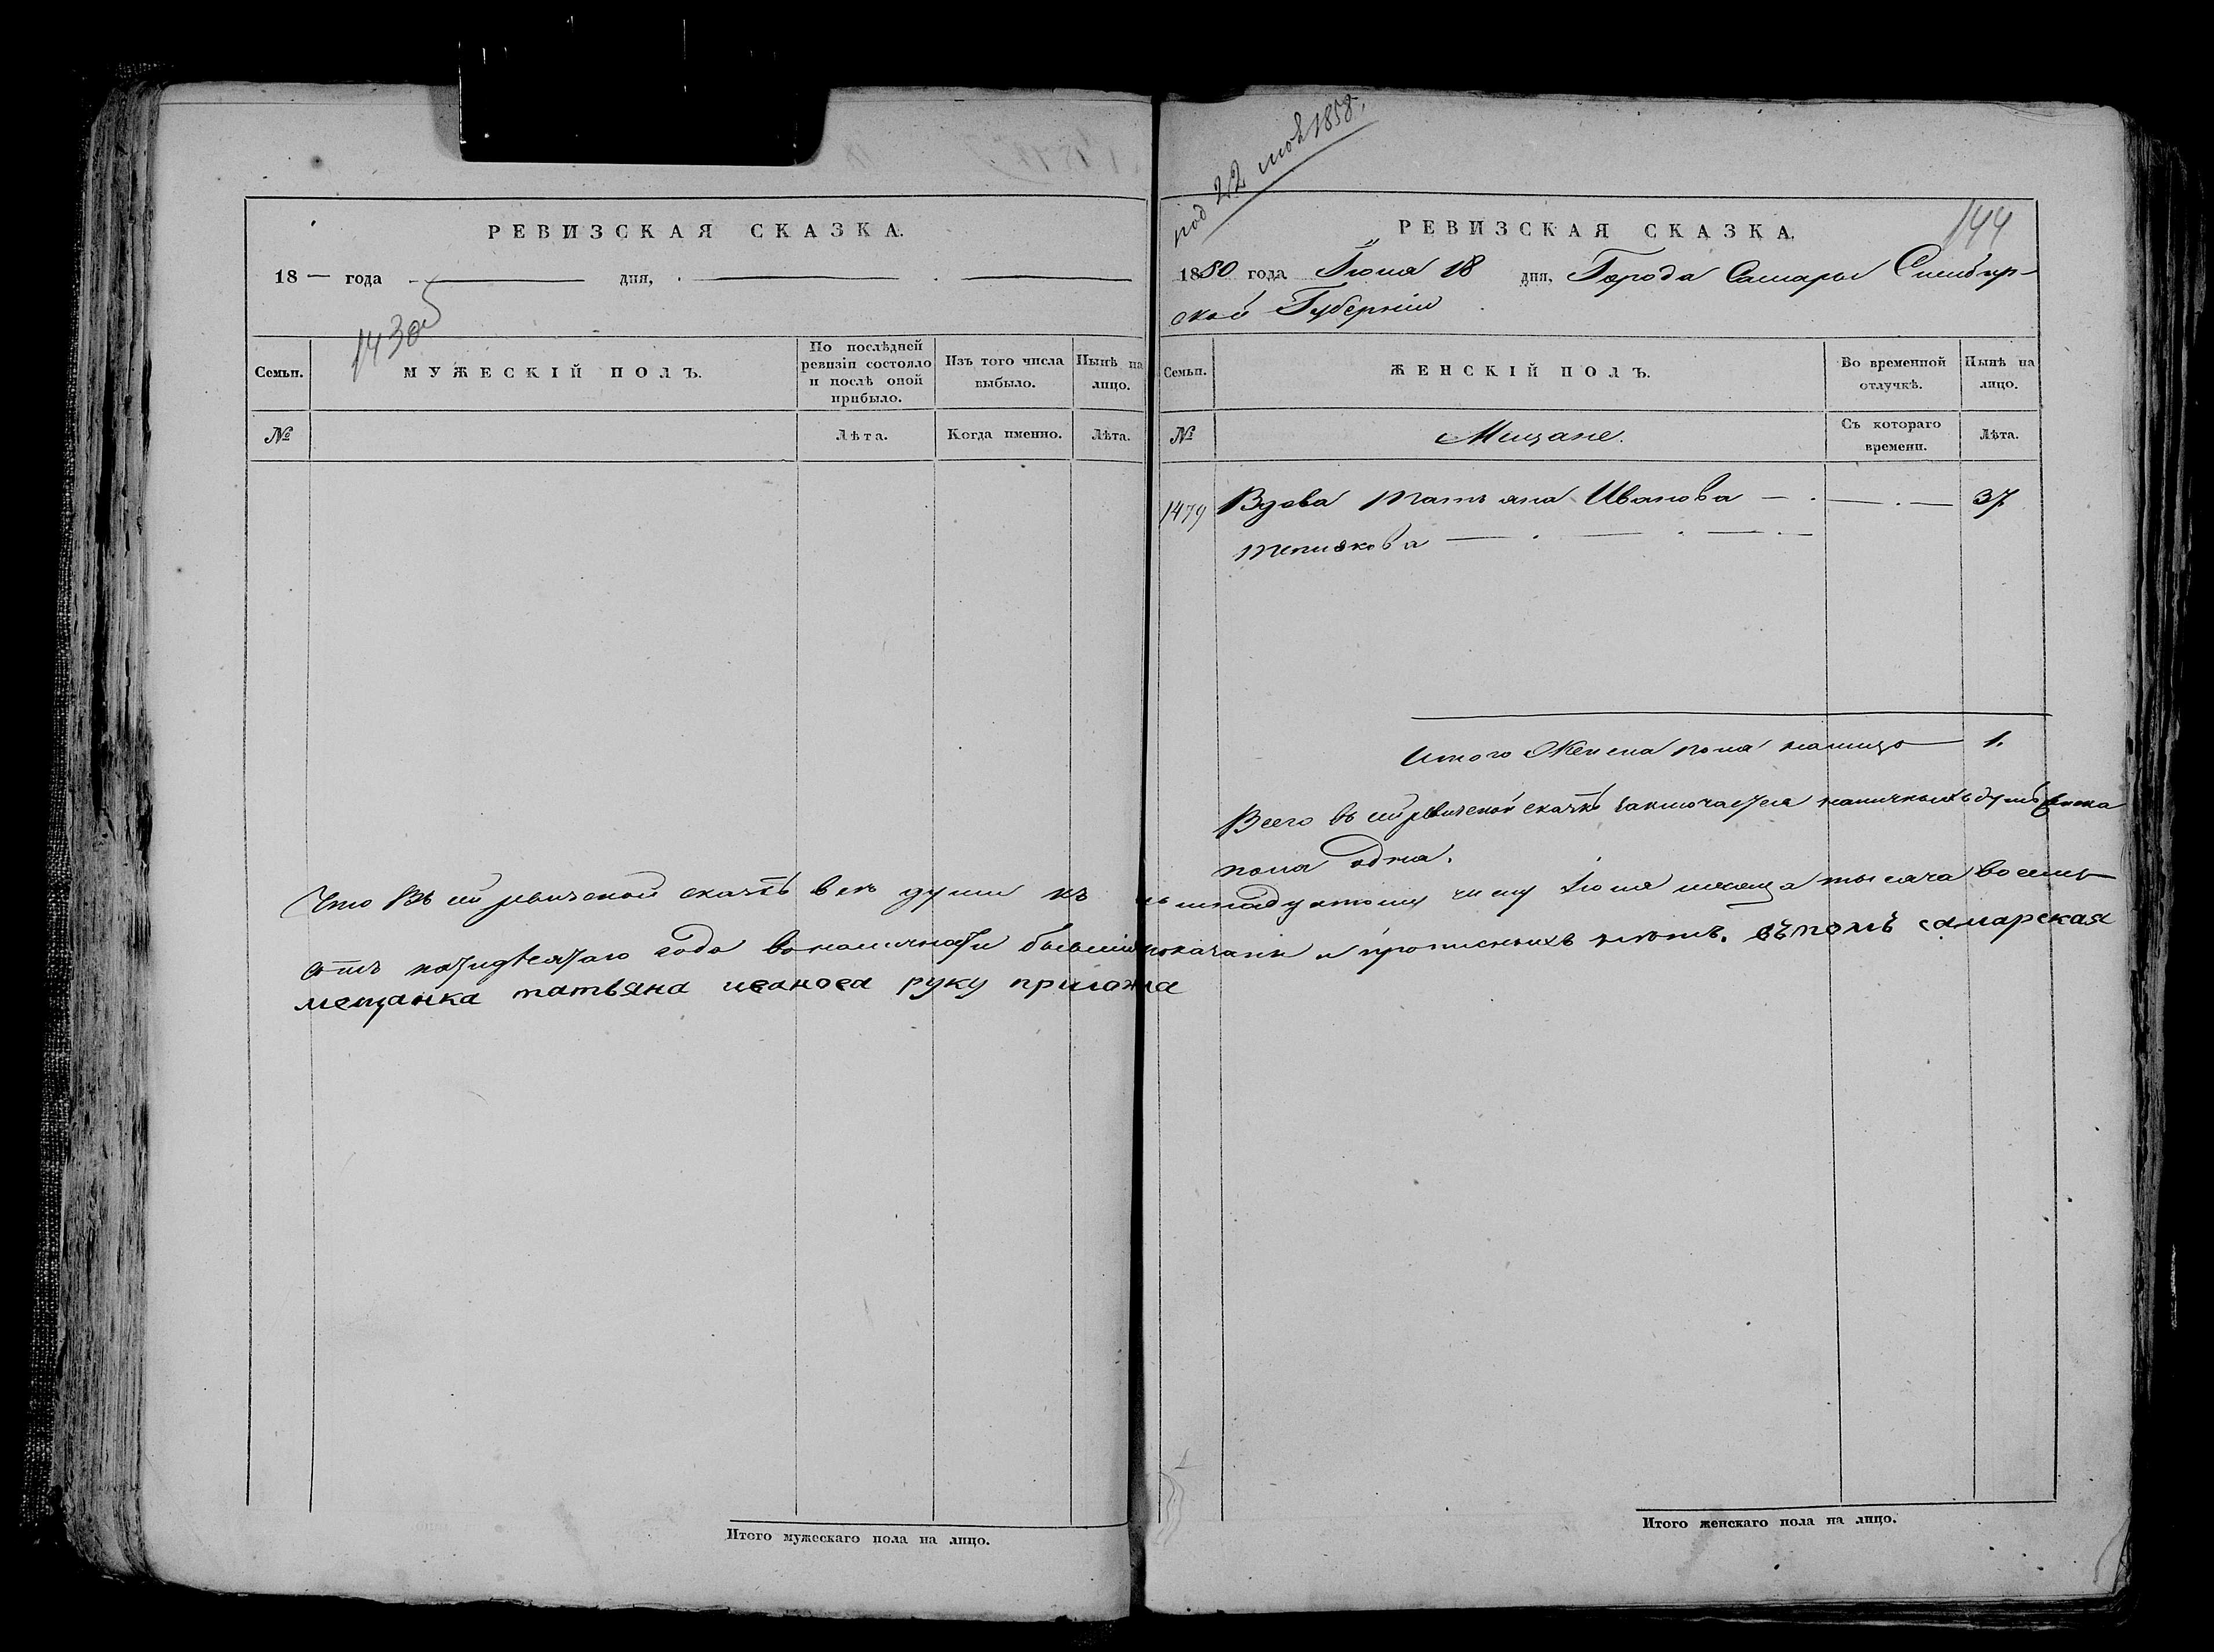 РЕВИЗСКАЯ СКАЗКА.
18 — года — дня,
1430
Семьи.
МУЖЕСКІЙ ПОЛЪ.
По послѣдней ревизіи состояло и послѣ оной прибыло.
Изъ того числа выбыло.
Нынѣ на лицо.
№
Лѣта.
Когда именно.
Лѣта.
Что въ сей ревизской сказкѣ все души къ
сотъ пятидесятаго года в наличности бывшие
мещанка татьяна иванова руку приложила
Итого мужескаго пола на лицо.
под 22 1858
144
РЕВИЗСКАЯ СКАЗКА.
1850 года Іюня 18 дня, Города Самары Симбир-
ской Губерніи
Семьи.
ЖЕНСКІЙ ПОЛЪ.
Во временной отлучкѣ.
Нынѣ на лицо.
№
Мещане.
Съ котораго времени.
Лѣта.
1479 Вдова Татьяна Иванова — 37
Теплякова
Итого Женска пола налицо — 1.
Всего въ сей ревизской сказкѣ заключается наличныхъ душъ женска
пола одна.
числу Іюня месяца тысяча восемь-
показаны и прописныхъ нѣтъ. въ томъ самарская
Итого женскаго пола на лицо.